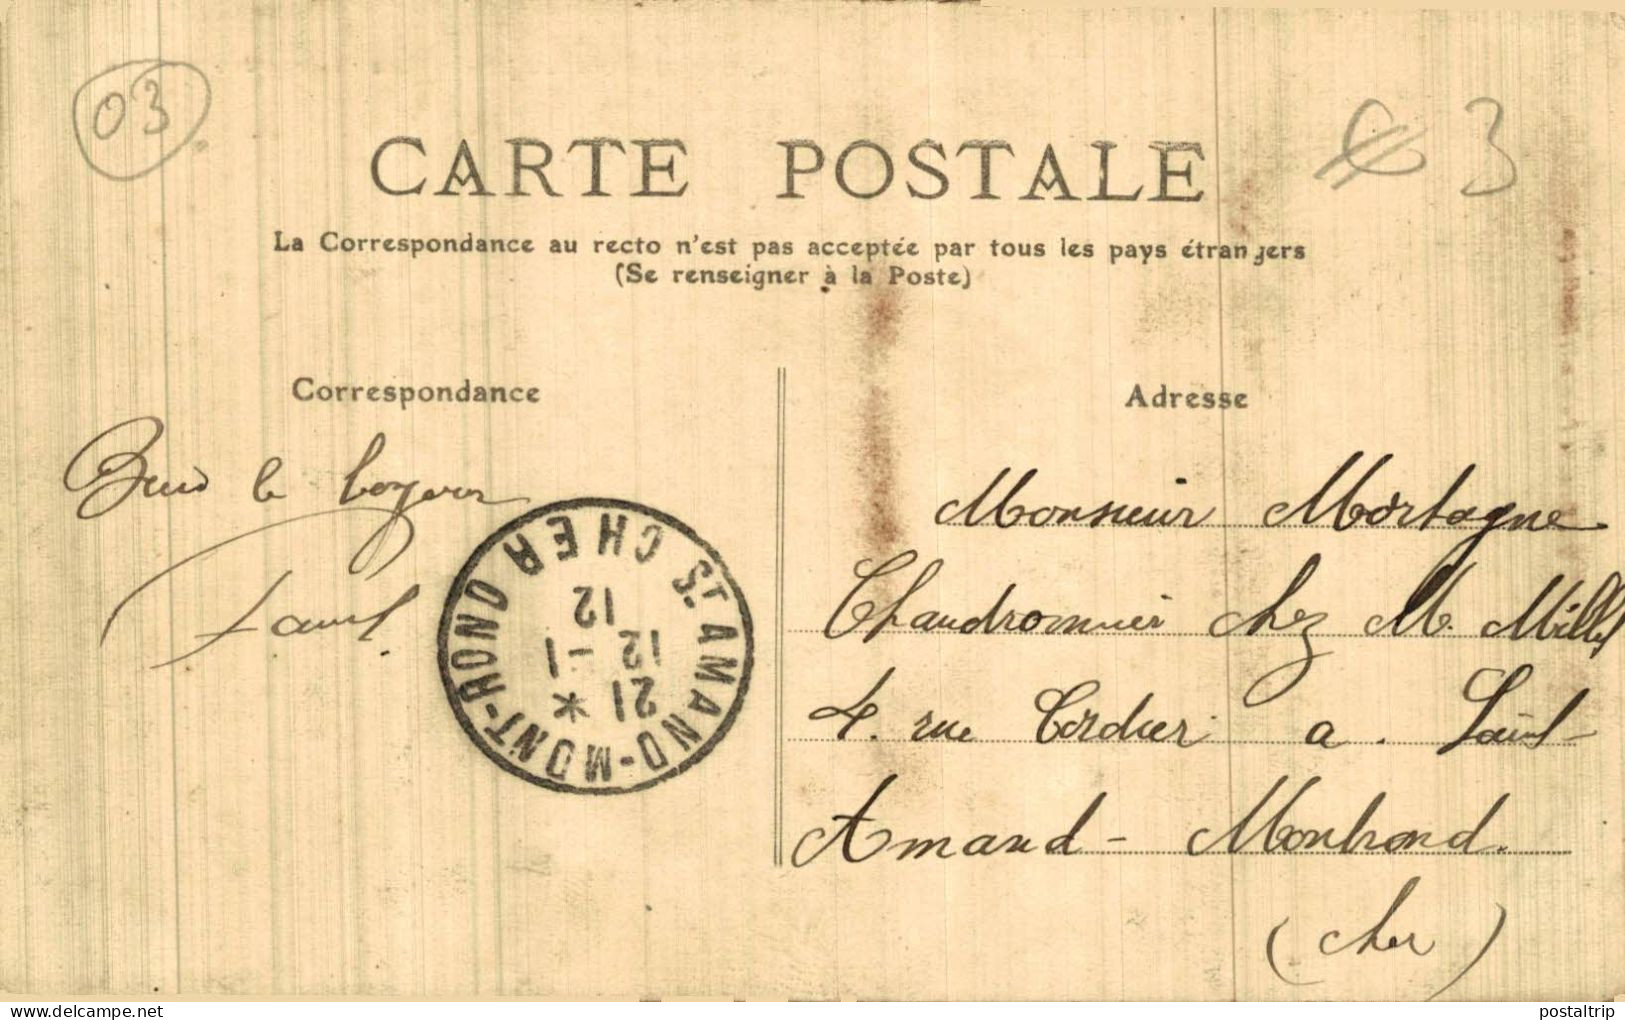 03
3
CARTE POSTALE
La Correspondance au recto n'est pas acceptée par tous les pays étrangers
(Se renseigner à la Poste)
Correspondance
Adresse
le
ST AMAND-MONT-ROND CHER
21 *
12 -1
12
Monsieur Mortagne
Chaudronnier chez M. Millet
4. rue Cordier a. Saint-
Amand - Montrond.
(Cher)
www.delcampe.net
postaltrip